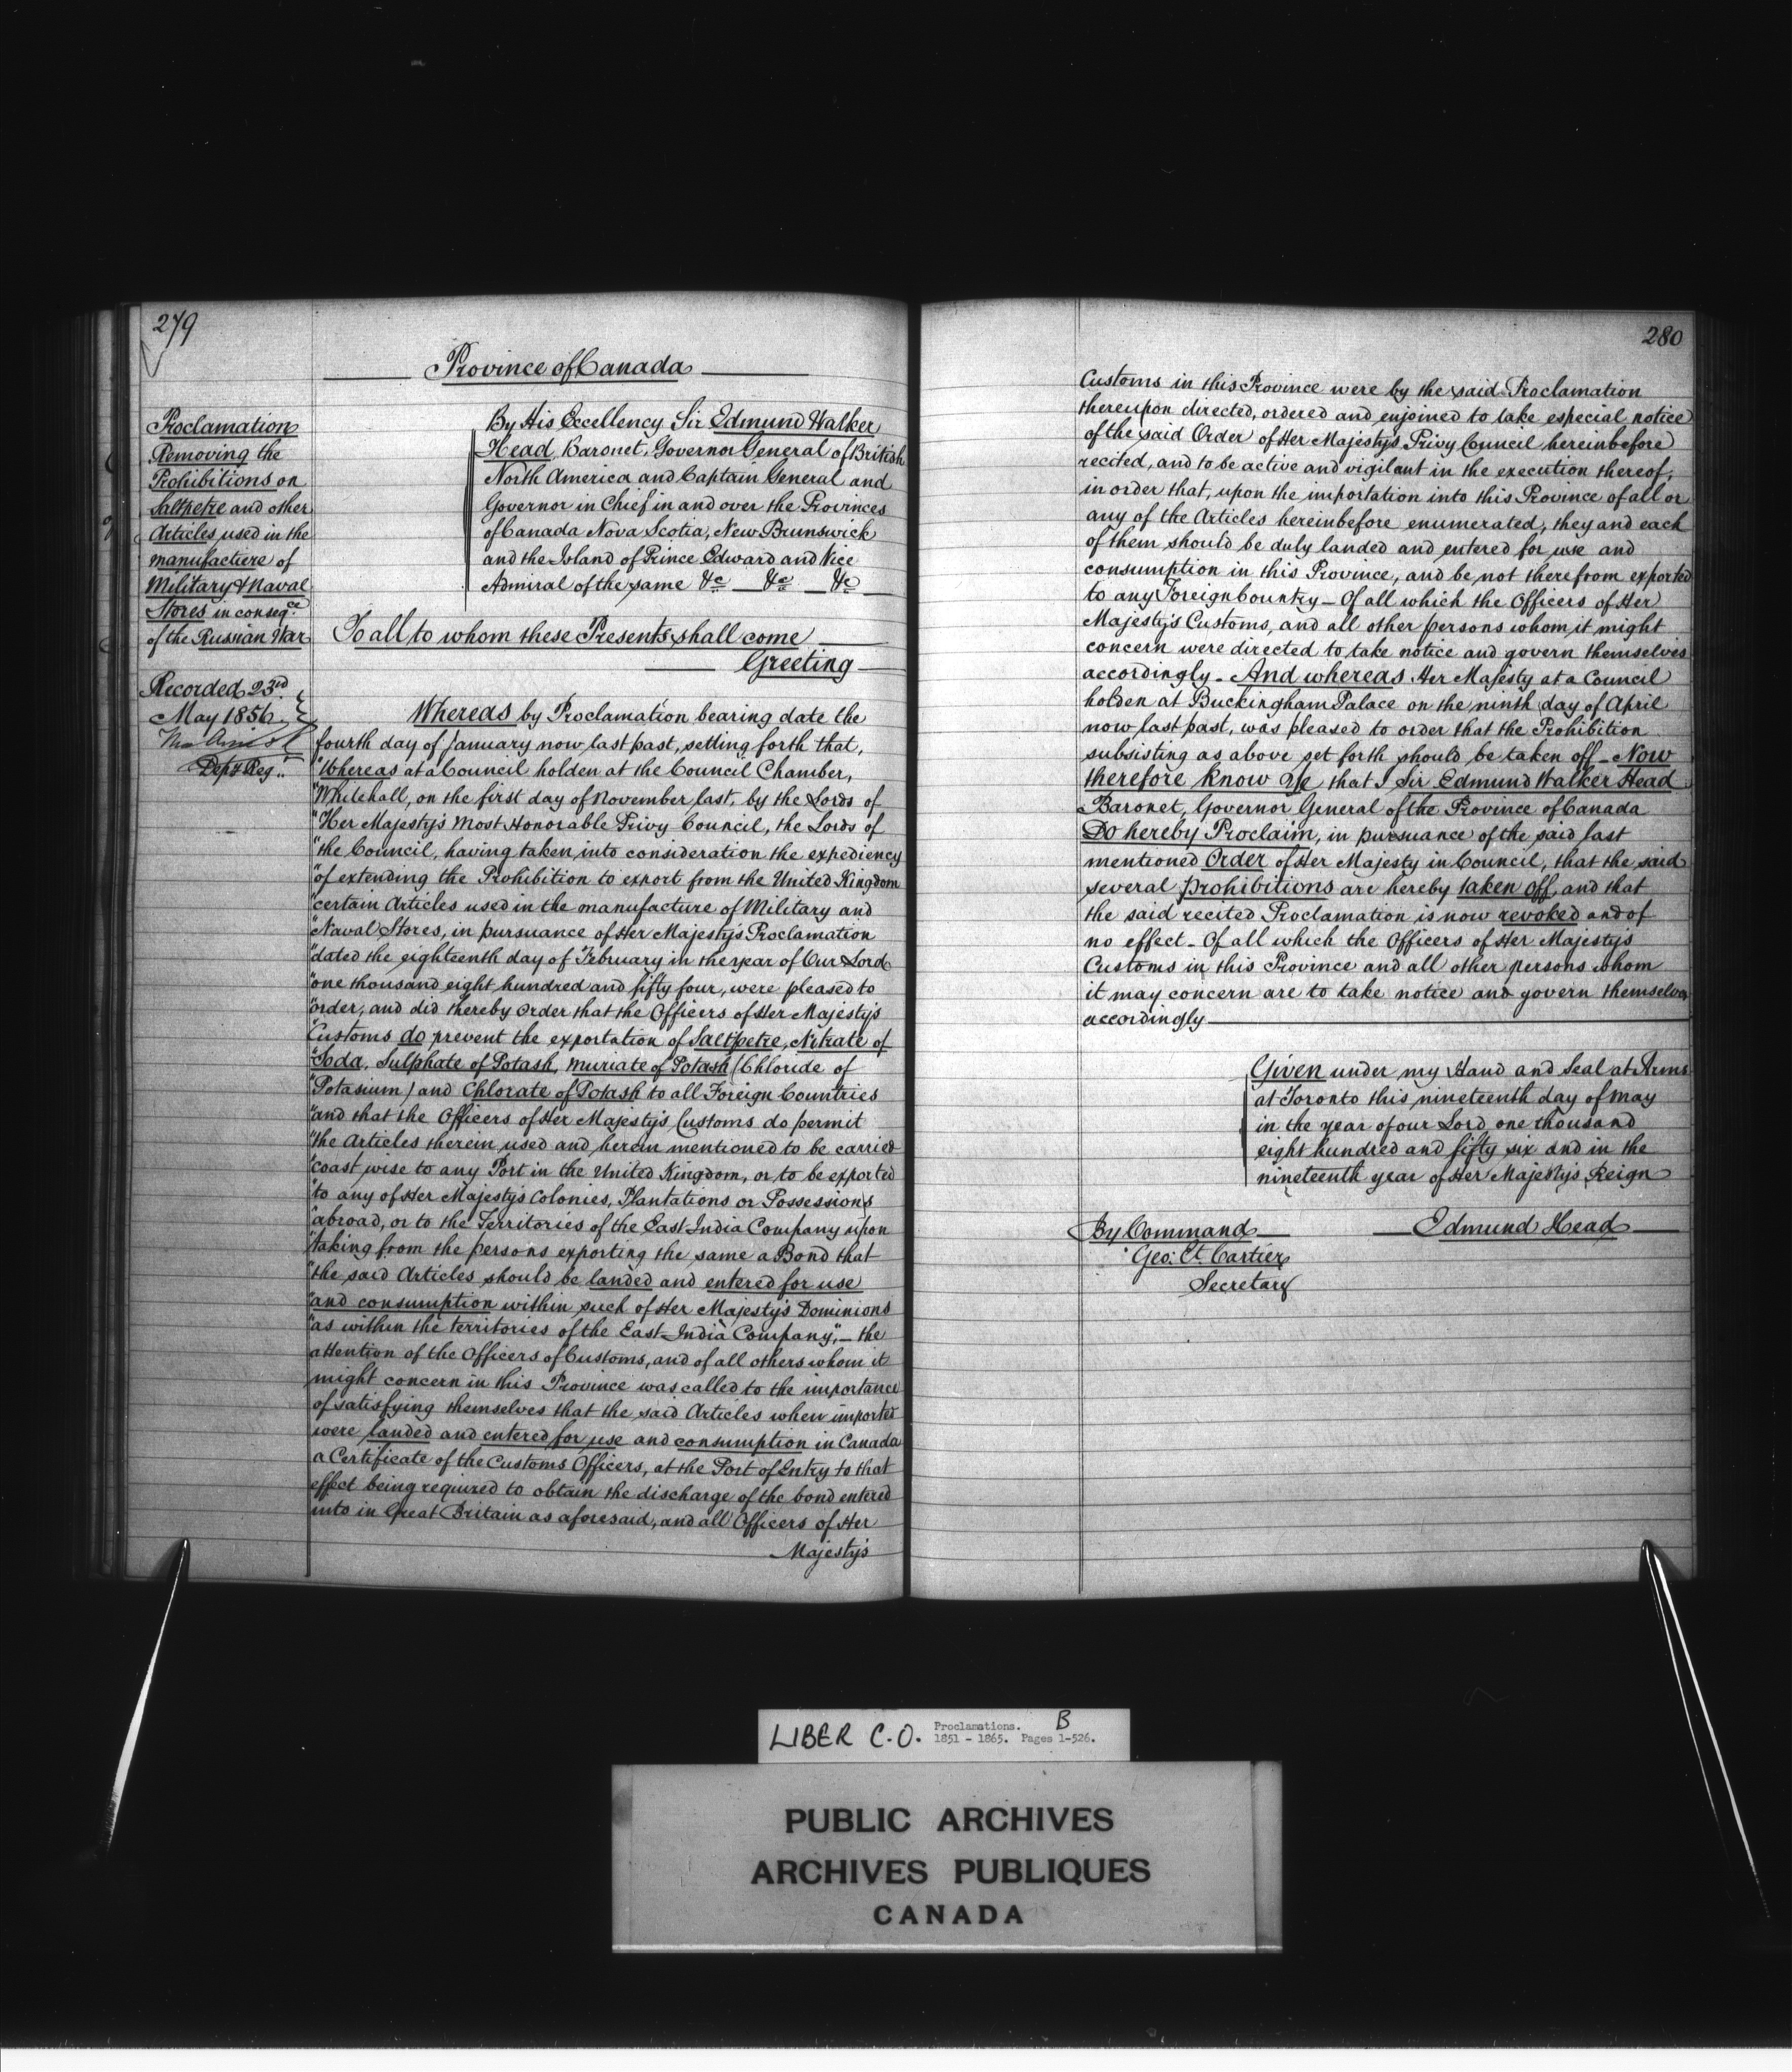 279
Province of Canada
Proclamation
Removing the
Prohibitions on
Saltpetre and other
Articles used in the
manufacture of
Military & Naval
Stores in conseqce
of the Russian War
Recorded 23rd
May 1856
Depy Reg..
By His Excellency Sir Edmund Walker
Head, Baronet, Governor General of British
North America and Captain General and
Governor in Chief in and over the Provinces
of Canada Nova Scotia, New Brunswick
and the Island of Prince Edward and Vice
Admiral of the same &c &c &c
To all to whom these Presents shall come
Greeting
Whereas by Proclamation bearing date the
fourth day of January now last past, setting forth that,
"Whereas at a Council holden at the Council Chamber,
"Whitehall, on the first day of November last, by the Lords of
"Her Majesty's Most Honorable Privy Council, the Lords of
"the Council, having taken into consideration the expediency
"of extending the Prohibition to export from the United Kingdom
"certain Articles used in the manufacture of Military and
"Naval Stores, in pursuance of Her Majesty's Proclamation
"dated the eighteenth day of February in the year of Our Lord
"one thousand eight hundred and fifty four, were pleased to
"order, and did thereby order that the Officers of Her Majesty's
"Customs do prevent the exportation of Saltpetre, Nitrate of
"Soda, Sulphate of Potash, Muriate of Potash (Chloride of
"Potasium) and Chlorate of Potash to all Foreign Countries
"and that the Officers of Her Majesty's Customs do permit
"the Articles therein used and herein mentioned to be carried
"coast wise to any Port in the United Kingdom, or to be exported
"to any of Her Majesty's Colonies, Plantations or Possessions
"abroad, or to the Territories of the East India Company upon
"taking from the persons exporting the same a Bond that
"the said Articles should be landed and entered for use
"and consumption within such of Her Majesty's Dominions
"as within the territories of the East India Company", – the
attention of the Officers of Customs, and of all others whom it
might concern in this Province was called to the importance
of satisfying themselves that the said Articles when imported
were landed and entered for use and consumption in Canada
a Certificate of the Customs Officers, at the Port of Entry to that
effect being required to obtain the discharge of the bond entered
into in Great Britain as aforesaid, and all Officers of Her
Majesty's
280
Customs in this Province were by the said Proclamation
thereupon directed, ordered and enjoined to take especial notice
of the said Order of Her Majesty's Privy Council hereinbefore
recited, and to be active and vigilant in the execution thereof,
in order that, upon the importation into this Province of all or
any of the Articles hereinbefore enumerated, they and each
of them should be duly landed and entered for use and
consumption in this Province, and be not therefrom exported
to any Foreign Country – Of all which the Officers of Her
Majesty's Customs, and all other persons whom it might
concern were directed to take notice and govern themselves
accordingly – And whereas Her Majesty at a Council
holden at Buckingham Palace on the ninth day of April
now last past, was pleased to order that the Prohibition
subsisting as above set forth should be taken off – Now
therefore Know Ye that I Sir Edmund Walker Head
Baronet, Governor General of the Province of Canada
Do hereby Proclaim, in pursuance of the said last
mentioned Order of Her Majesty in Council, that the said
several prohibitions are hereby taken off, and that
the said recited Proclamation is now revoked and of
no effect – Of all which the Officers of Her Majesty's
Customs in this Province and all other persons whom
it may concern are to take notice and govern themselves
accordingly
Given under my Hand and Seal at Arms
at Toronto this nineteenth day of May
in the year of our Lord one thousand
eight hundred and fifty six and in the
nineteenth year of Her Majesty's Reign
By Command Edmund Head
Geo: Et. Cartier
Secretary
LIBER C.O. Proclamations. B
1851 - 1865. Pages 1-526.
PUBLIC ARCHIVES
ARCHIVES PUBLIQUES
CANADA